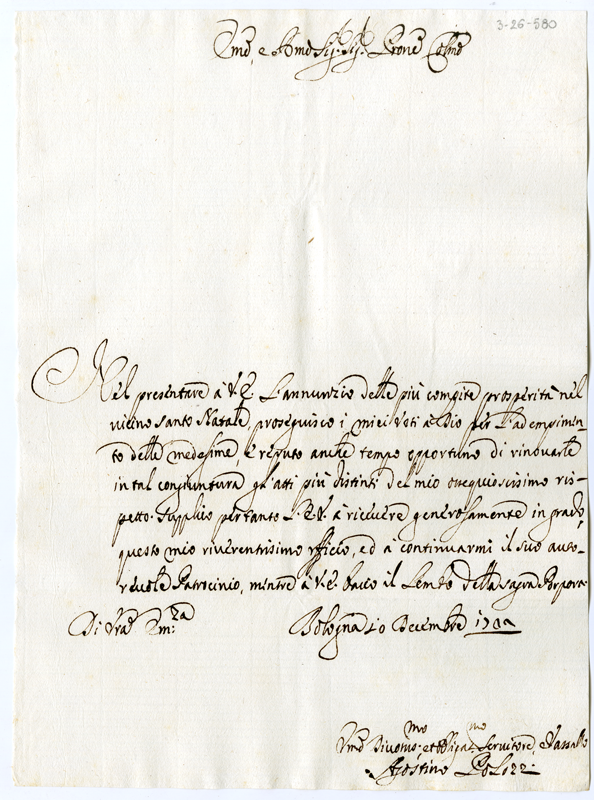 3-26-580
Em̃o, e Rmo Sig:r Sig:r Prone Colmo
Nel presentare à V. E. l'annunzio delle più compite prosperità nel
vicino Santo Natale, proseguisco i miei voti a Dio per l'adempimen-
to delle medesime e reputo anche tempo opportuno di rinovarle
in tal congiuntura gl'atti più distinti del mio ossequiosissimo ris-
petto. Supplico pertanto l'E.V. à ricevere generosamente in grado,
questo mio riverentissimo officio, ed a continuarmi il suo auto-
revole Patrocinio, mentre à V. E. bacio il Lembo della sagra Porpora.
Di Vra Em:za
Bologna Decembre
Vmo Divotis:mo et obligat:mo Servitore, e Vassallo
Agostino